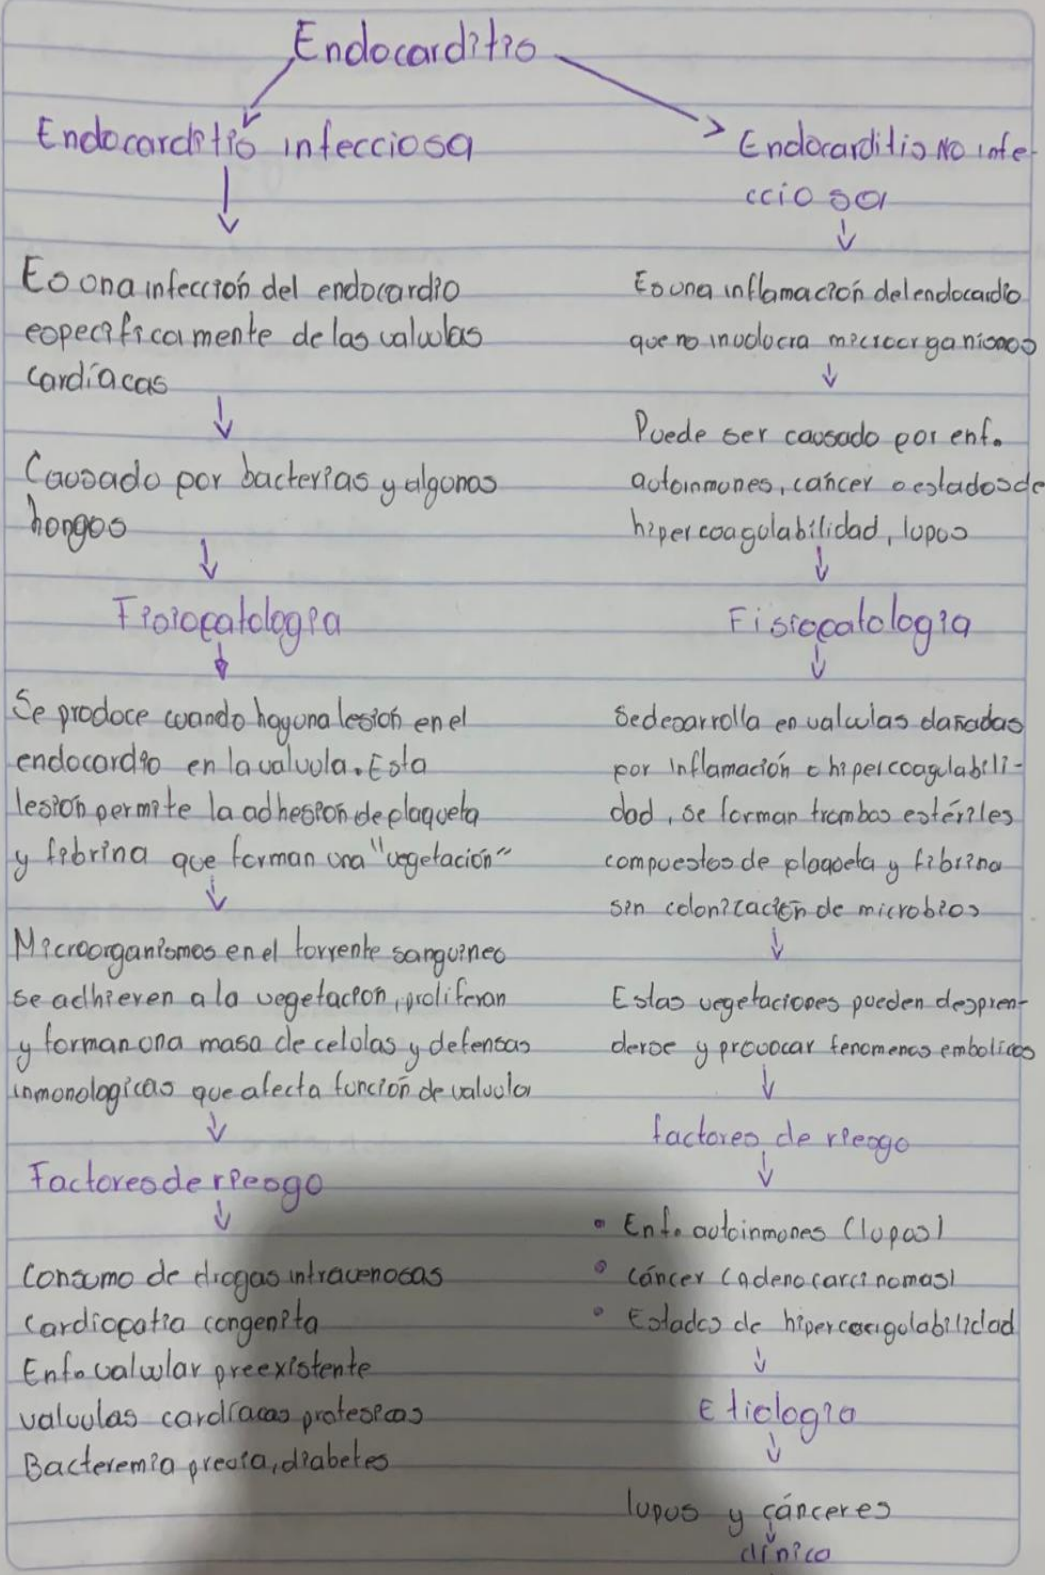 Endocarditis
Endocarditis infecciosa
Es una infección del endocardio
especificamente de las valvulas
cardíacas
Causado por bacterias y algunos
hongos
Fisiopatologia
Se produce cuando hay una lesión en el
endocardio en la valvula. Esta
lesión permite la adhesión de plaqueta
y fibrina que forman una "vegetación"
Microorganismos en el torrente sanguineo
se adhieren a la vegetación, proliferan
y forman una masa de celulas y defensas
inmunologicas que afecta función de valvula
Factores de riesgo
Consumo de drogas intravenosas
Cardiopatia congenita
Enf. valvular preexistente
valvulas cardíacas protesicas
Bacteremia previa, diabetes
Endocarditis NO infe-
cciosa
Es una inflamación del endocardio
que no involucra microorganismos
Puede ser causado por enf.
autoinmunes, cáncer o estados de
hipercoagulabilidad, lupus
Fisiopatologia
Se desarrolla en valvulas dañadas
por inflamación o hipercoagulabili-
dad, se forman trombos estériles
compuestos de plaqueta y fibrina
sin colonización de microbios
Estas vegetaciones pueden despren-
derse y provocar fenomenos embolicos
factores de riesgo
• Enf. autoinmunes (lupus)
• Cáncer (adenocarcinomas)
• Estados de hipercoagulabilidad
Etiologia
lupus y cánceres
clínico